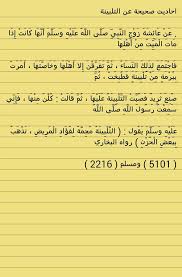 احاديث صحيحة عن التلبينة
عن عائشة زوج النبي صلى الله عليه وسلم أنها كانت إذا
مات الميت من أهلها
فاجتمع لذلك النساء ، ثم تفرقن إلا أهلها وخاصتها ، أمرت
ببرمة من تلبينة فطبخت ، ثم
صنع ثريد فصبت التلبينة عليها ، ثم قالت : كلن منها ، فإني
سمعت رسول الله صلى الله
عليه وسلم يقول : ( التلبينة مجمة لفؤاد المريض ، تذهب
ببعض الحزن ) رواه البخاري
( 5101 ) ومسلم ( 2216 )